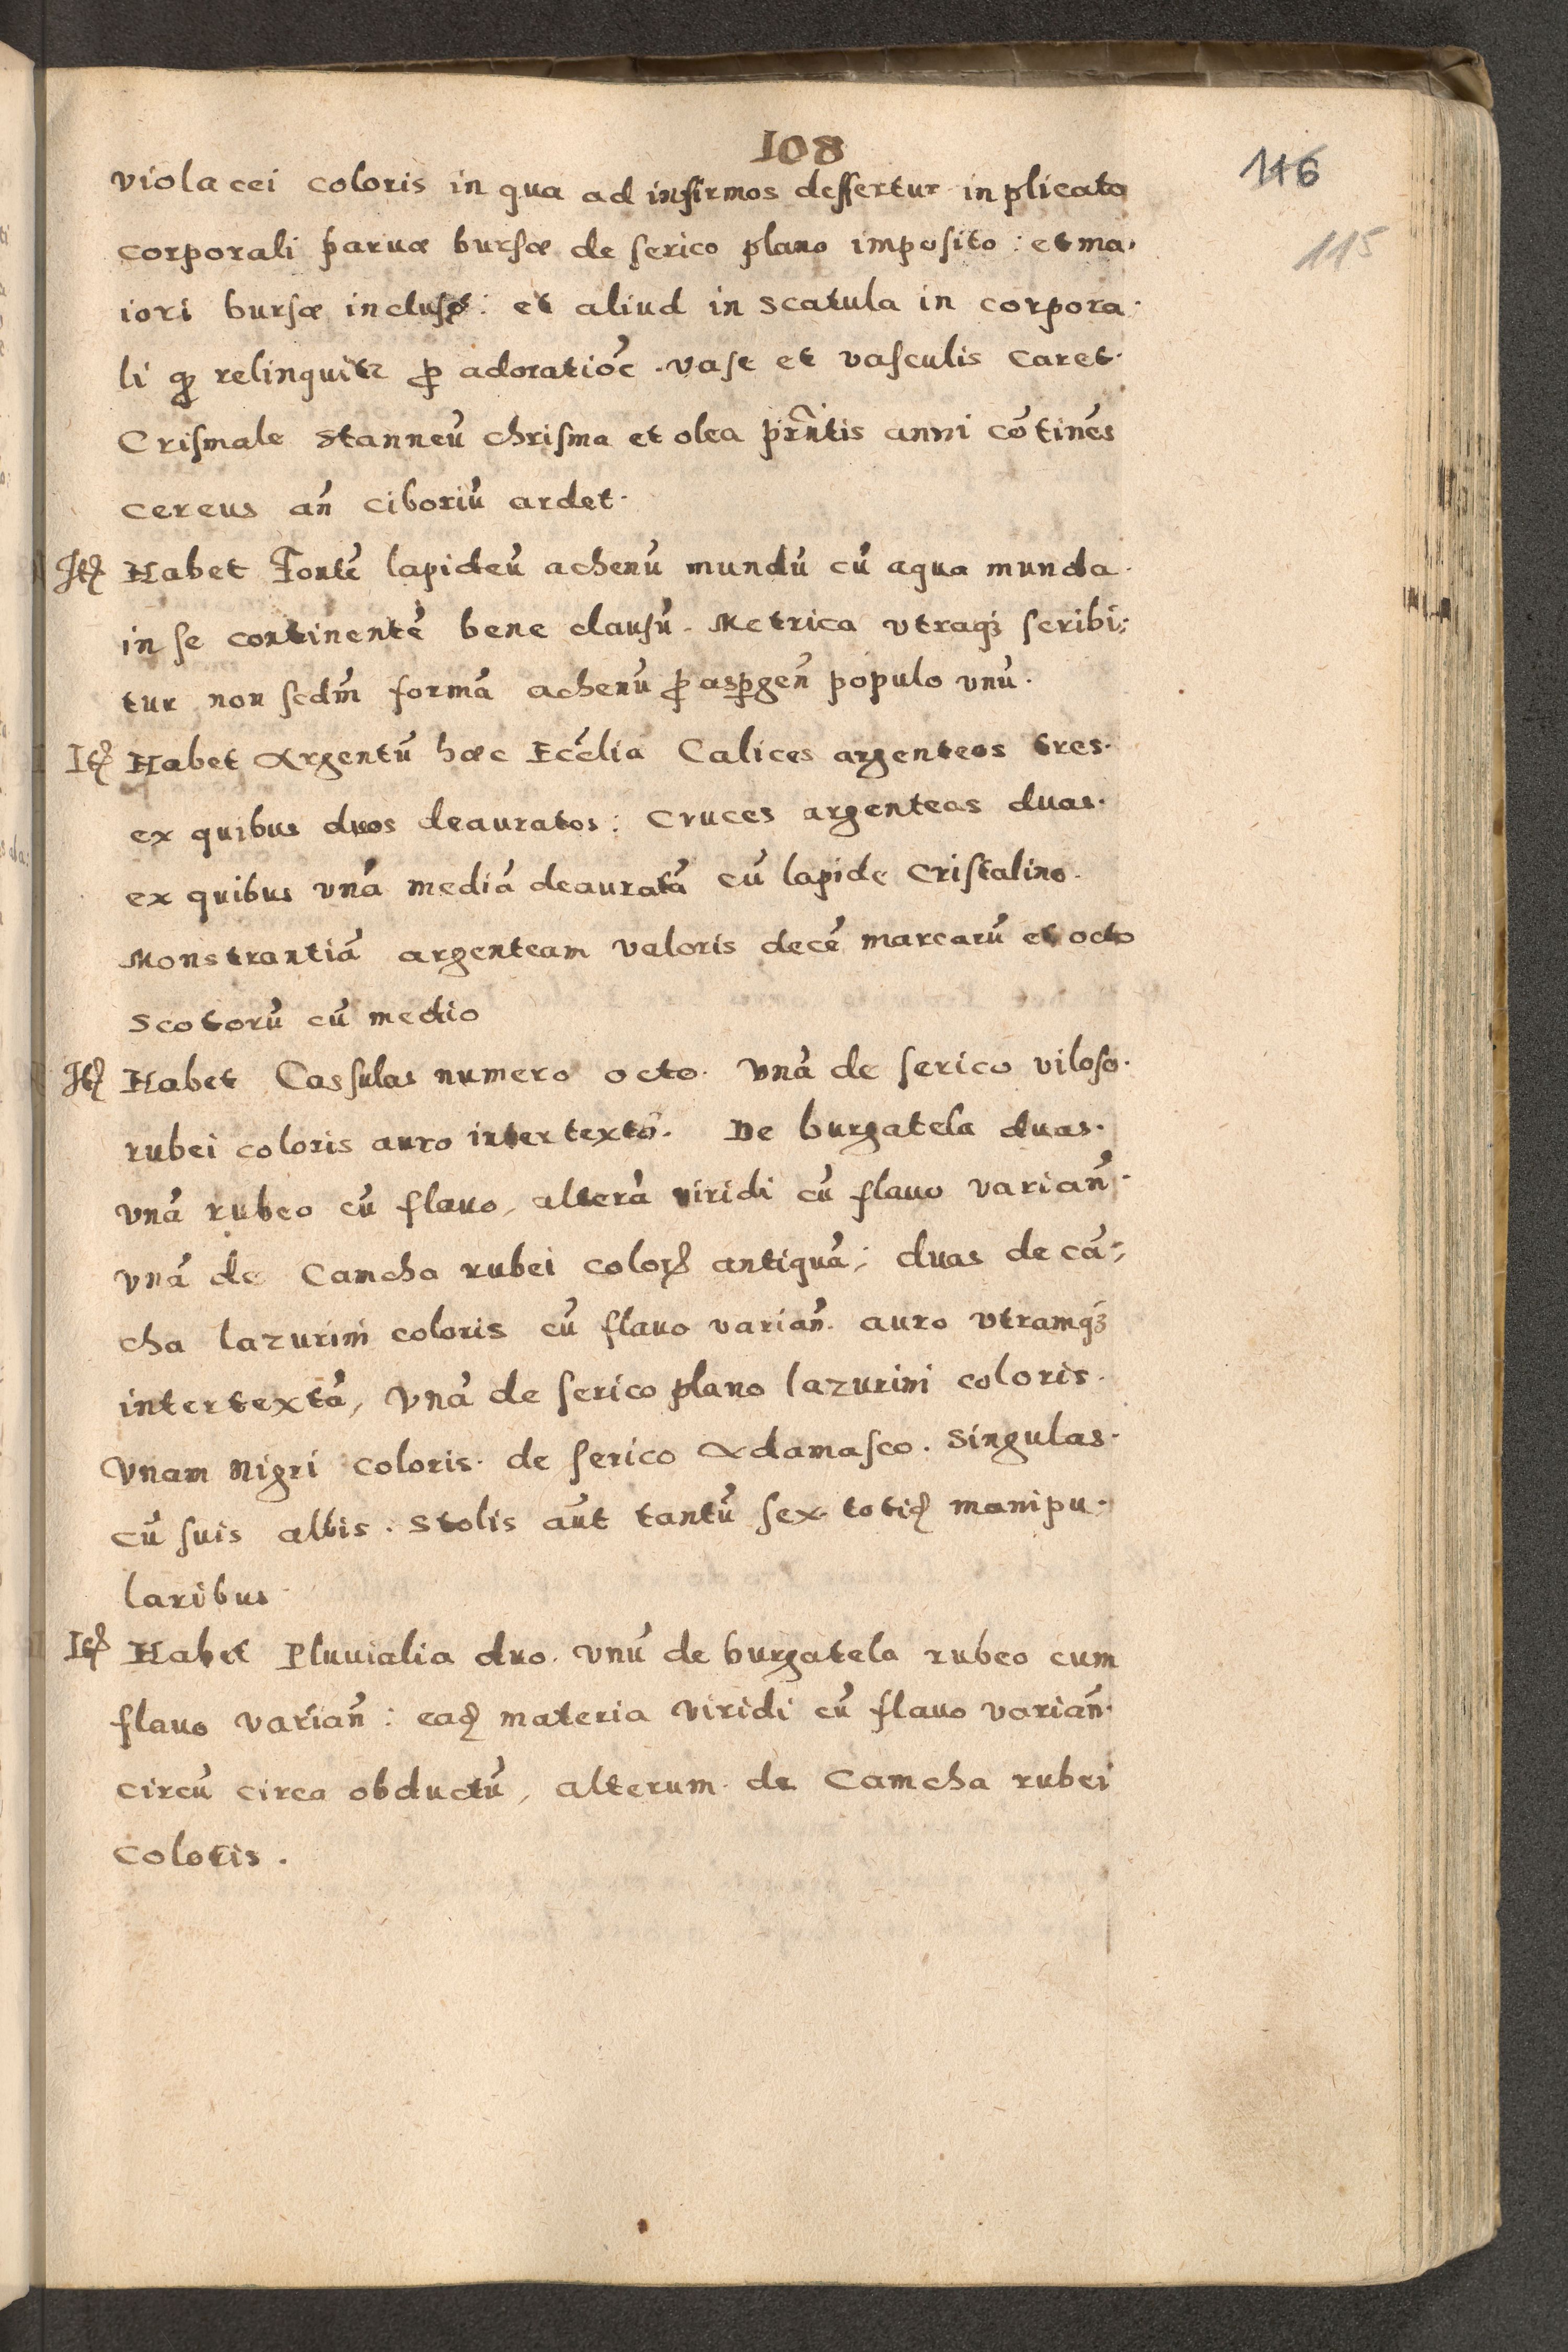 108
116
115
violacei coloris in qua ad infirmos deffertur in plicato
corporali paruæ bursæ de serico plano imposito: et ma,
iori bursæ inclusæ: et aliud in scatula in corpora
li qͦ relinquitͬ ꝓ adoratiōe. Vase et vasculis caret.
Crismale stanneū chrisma et olea prn̄tis anni cōtinēs
cereus an̄ ciboriū ardet.
Itꝫ Habet Fontē lapideū ahenū mundū cū aqua munda
in se continentē bene clausū. Metrica vtraqꝫ scribi;
tur non secdm̄ formā achenū ꝓ asꝑgen̄ populo vnū.
Itꝫ Habet Argentū hæc Eccl̄ia Calices argenteos tres.
ex quibus duos deauratos: Cruces argenteas duas.
ex quibus vnā mediā deauratā cū lapide Cristalino.
Monstrantiā argenteam valoris decē marcarū et octo
scotorū cū medio
Itꝫ Habet Cassulas numero octo. Vnā de serico viloso.
rubei coloris auro intertextō. De burgatela duas.
vnā rubeo cū flauo, alterā viridi cū flauo varian̄.
vnā de Camcha rubei colorꝭ antiquā; duas de cā;
cha lazurini coloris cū flauo varian̄. auro vtramqꝫ
intertextā, Vnā de serico plano lazurini coloris.
Vnam Nigri coloris. de serico Adamasco. Singulas.
cū suis albis. Stolis aūt tantū sex. totiꝫ manipu.
laribus.
Itꝫ Habet Pluuialia duo. Vnū de burgatela rubeo cum
flauo varian̄: eaꝫ materia Viridi cū flauo varian̄.
circū circa obductū, alterum de Camcha rubei
coloris.